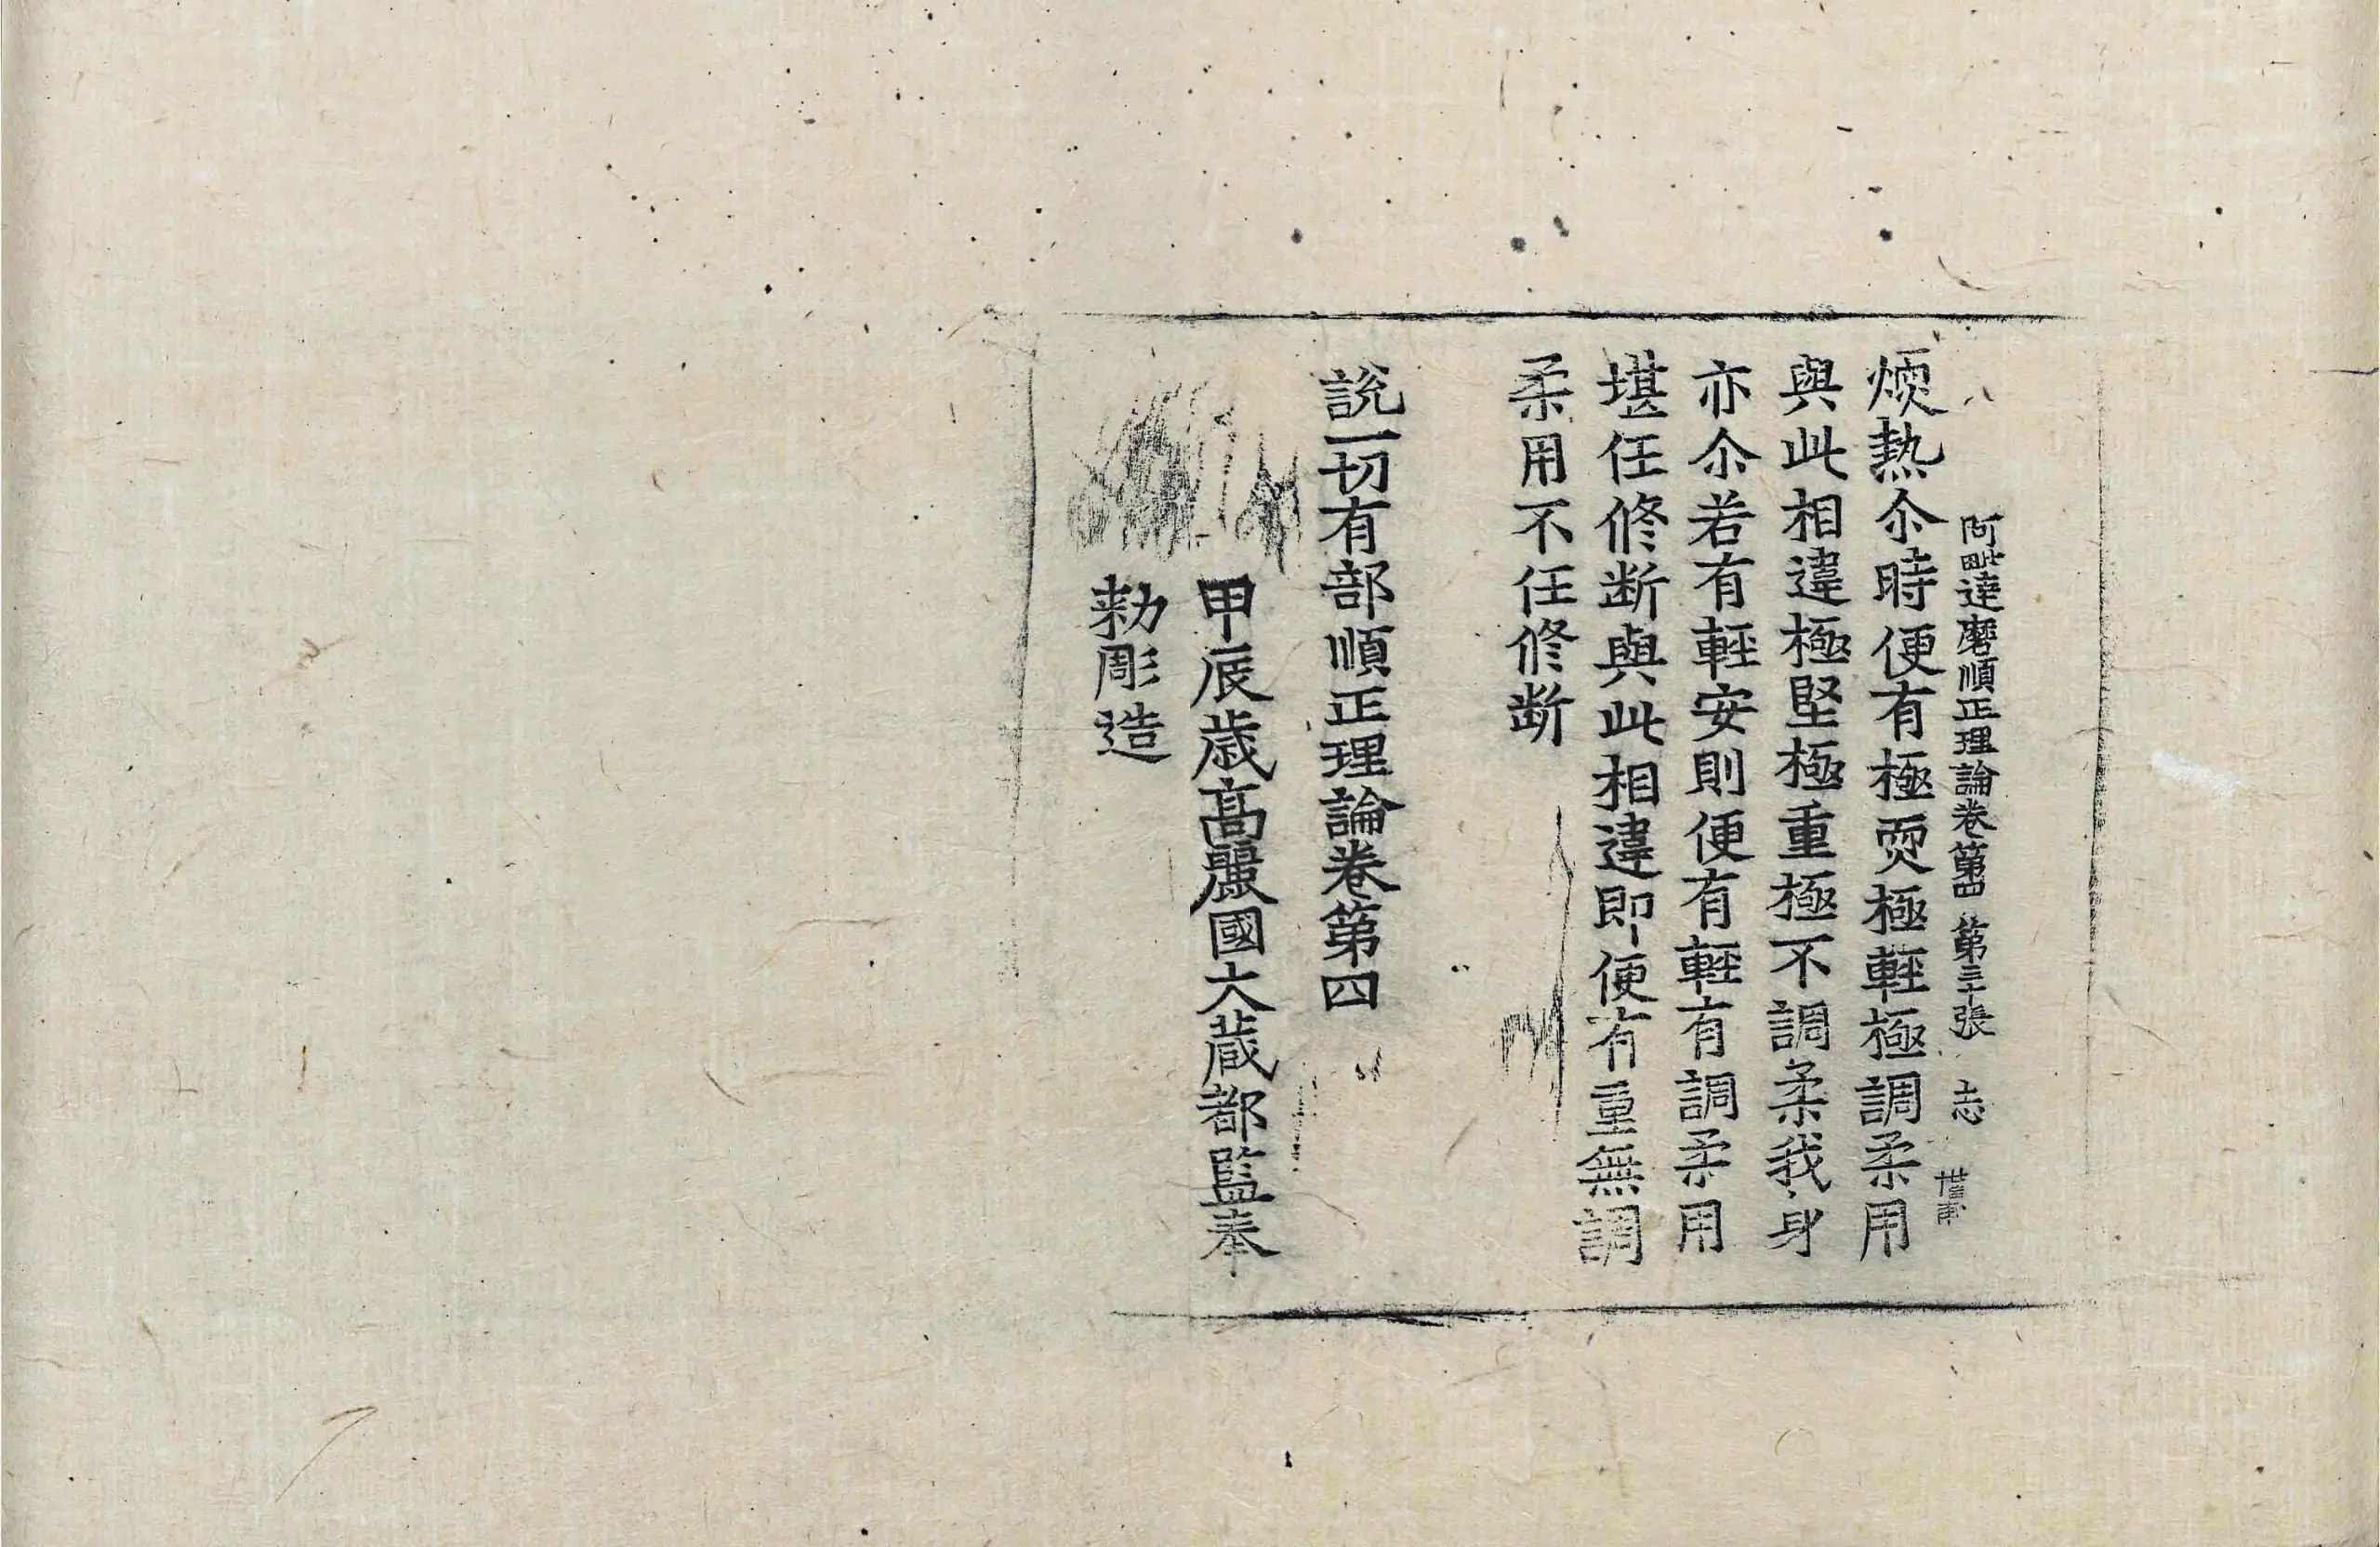 阿毗達磨順正理論卷第四 第三十張 志
煗熱尒時便有極耎極輕極調柔用
與此相違極堅極重極不調柔我身
亦尒若有輕安則便有輕有調柔用
堪任修斷與此相違即便有重無調
柔用不任修斷
說一切有部順正理論卷第四
甲辰歲高麗國大藏都監奉
勅彫造